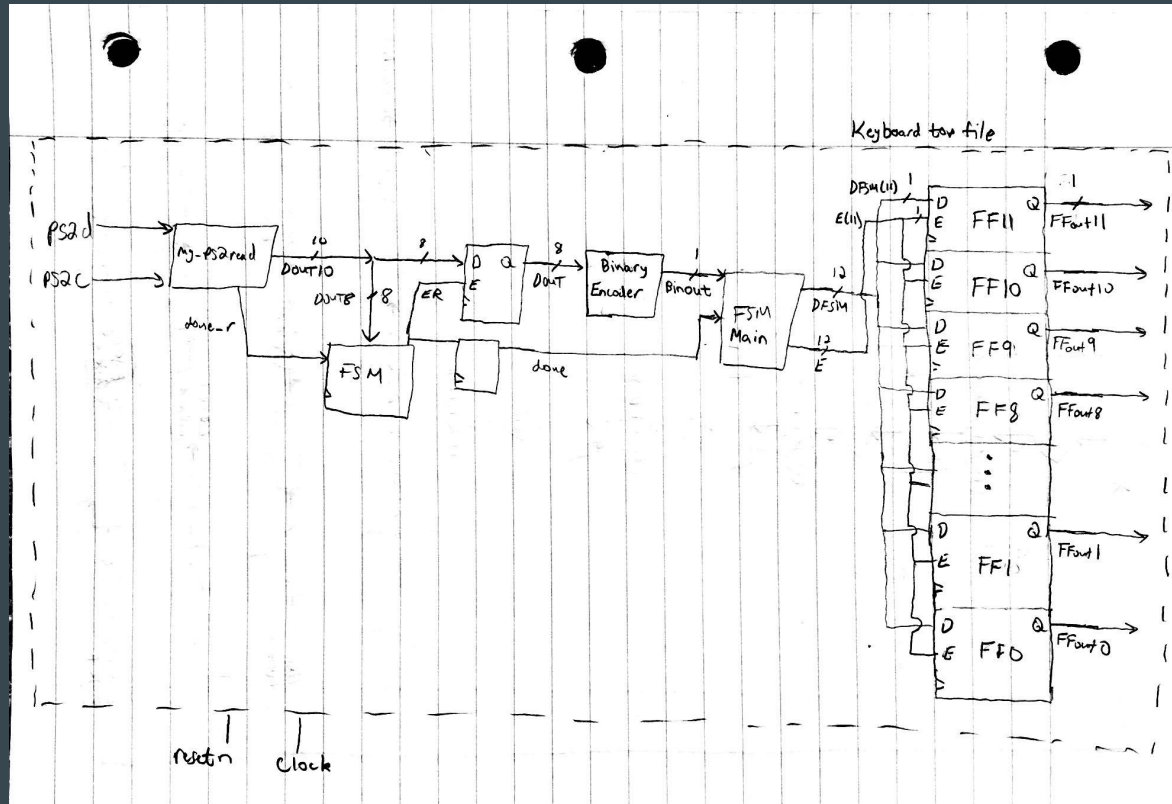 Keyboard top file
ps2d
ps2c
my-ps2read
10
DOUT10
done_r
DOUT8
8
FSM
8
ER
D Q
E
8
DOUT
done
Binary
Encoder
1
Binout
FSM
Main
12
DFSM
12
E
1
E(11)
1
D Q
E
FF11
1
FFout11
D Q
E
FF10
FFout10
D Q
E
FF9
FFout9
D Q
E
FF8
FFout8
D Q
E
FF1
FFout1
D Q
E
FF0
FFout0
resetn
clock